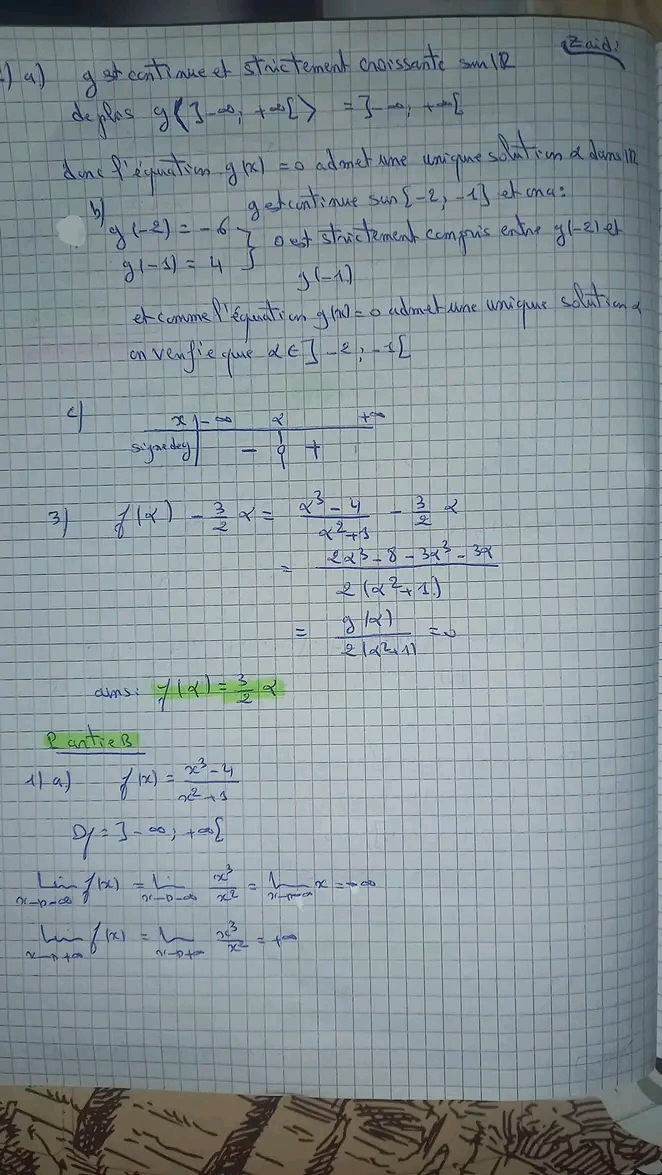 Zaidi
1) a) g est continue et strictement croissante sur IR
de plus g(]-∞; +∞[) = ]-∞; +∞[
donc l'équation g(x) = 0 admet une unique solution α dans IR
b) g est continue sur [-2, -1] et on a:
g(-2) = -6 } 0 est strictement compris entre g(-2) et
g(-1) = 4 } g(-1)
et comme l'équation g(x) = 0 admet une unique solution α
on vérifie que α ∈ ]-2; -1[
c) x | -∞ α +∞
signe de g | - 0 +
3) f(α) - 3/2 α = (α³ - 4)/(α² + 1) - 3/2 α
= (2α³ - 8 - 3α³ - 3α)/(2(α² + 1))
= g(α)/(2(α²+1)) = 0
ainsi f(α) = 3/2 α
Partie B
1) a) f(x) = (x³ - 4)/(x² + 1)
Df = ]-∞; +∞[
Lim x→-∞ f(x) = Lim x→-∞ x³/x² = Lim x→-∞ x = -∞
Lim x→+∞ f(x) = Lim x→+∞ x³/x² = +∞